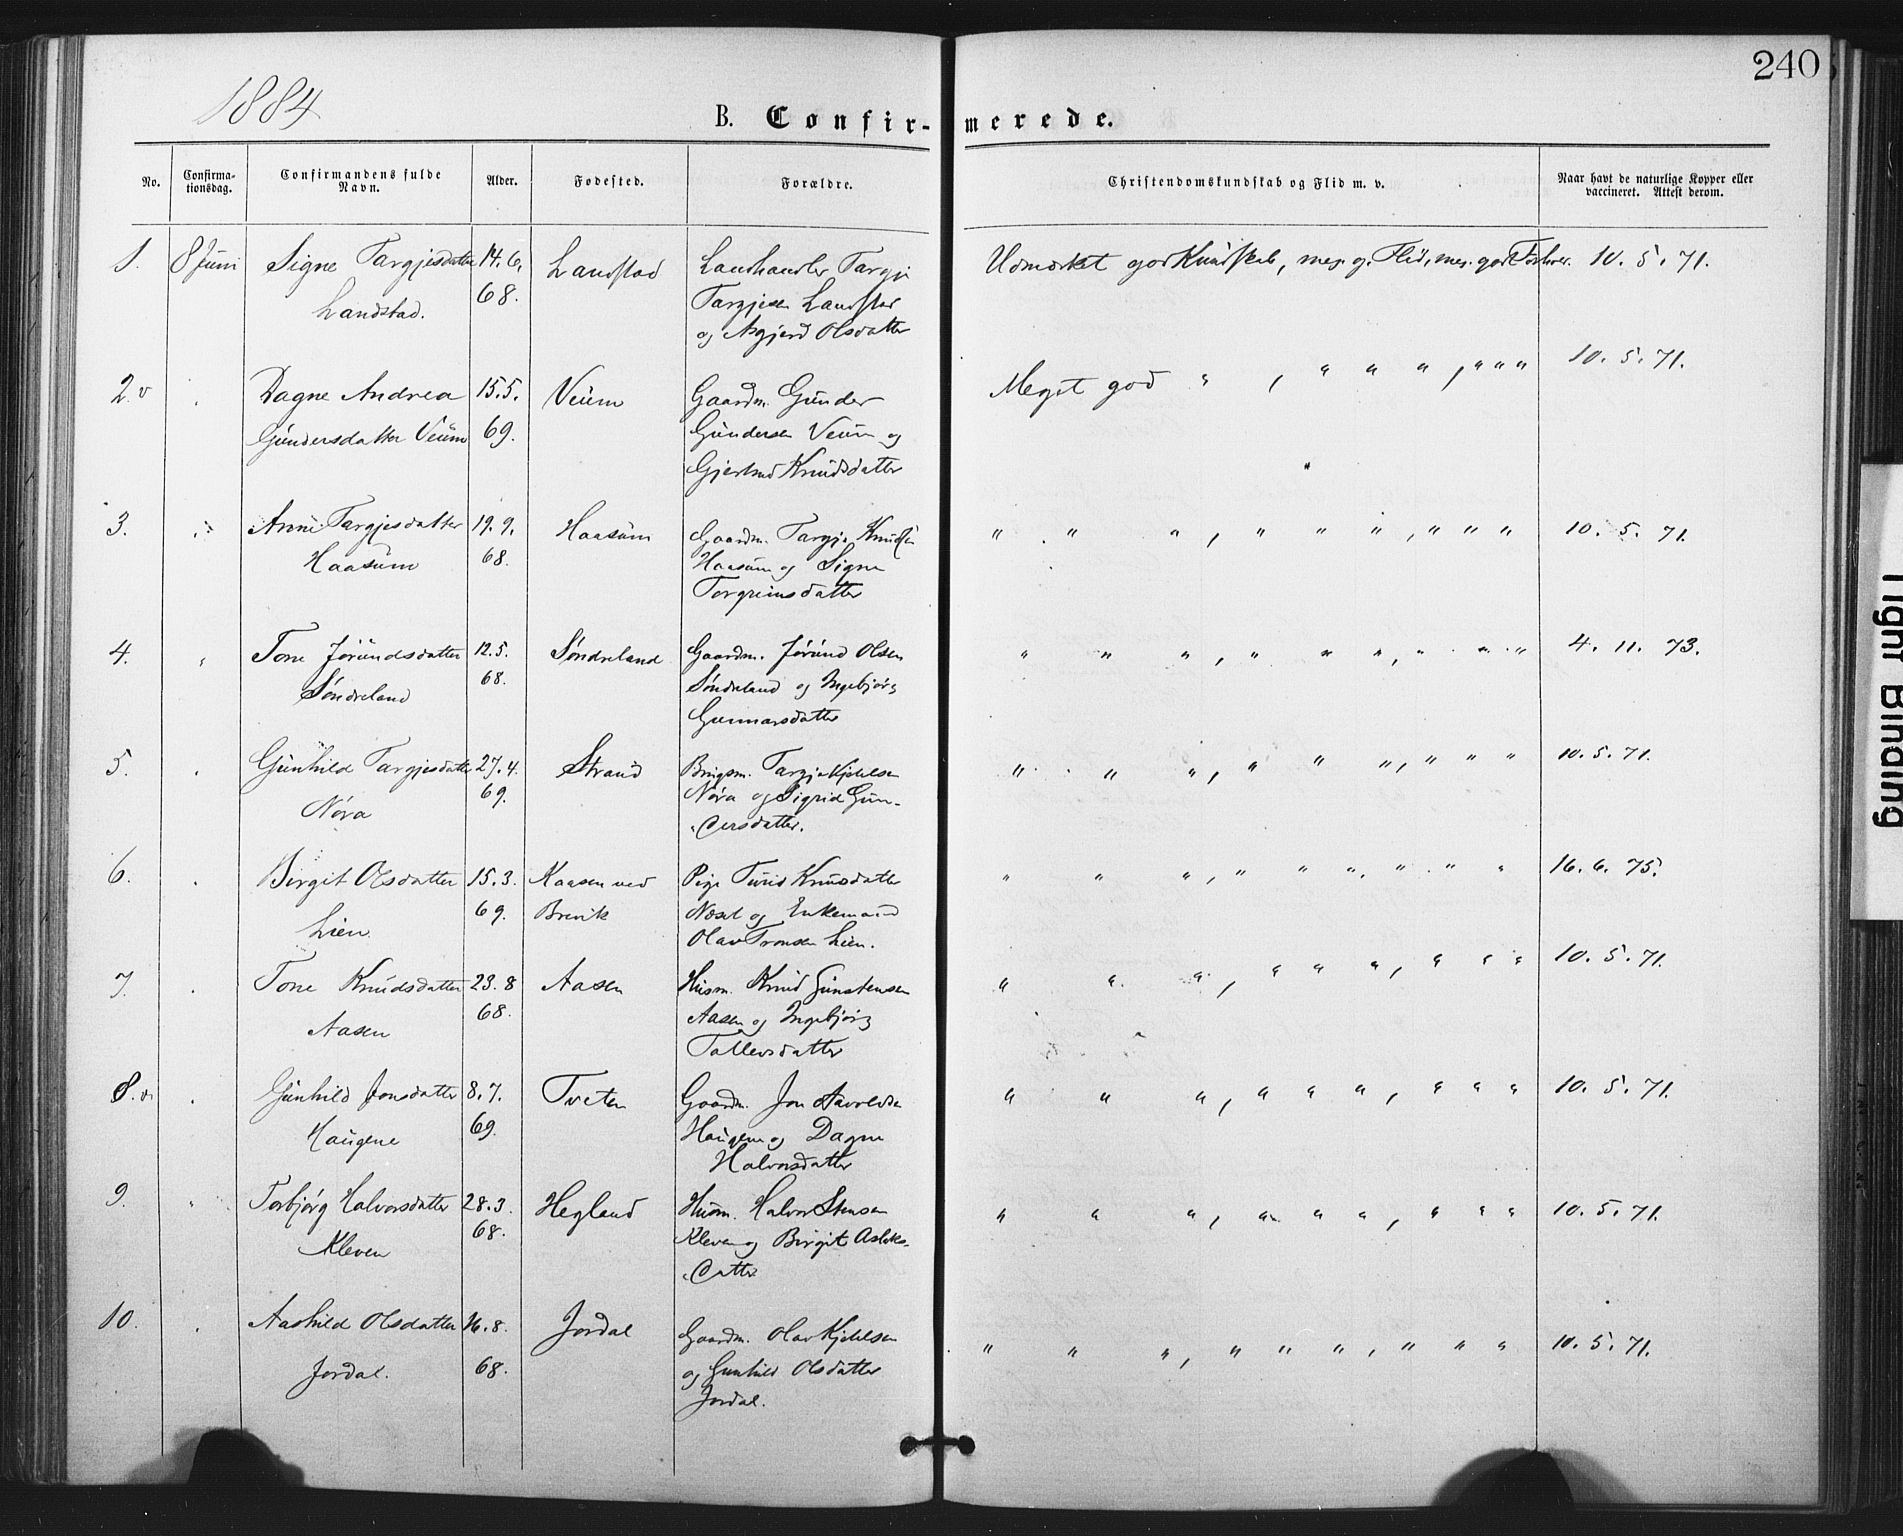 240
1884
B. Confir-merede.
No.
Confirma-
tionsdag.
Confirmandens fulde
Navn.
Alder.
Fødested.
Forældre.
Christendomskundskab og Flid m. v.
Naar havt de naturlige Kopper eller
vaccineret. Attest derom.
1. 8 Juni Signe Targjesdatter 14.6. Landstad Landhandler Targje Udmærket god Kundskab, meg. g. Flid, meg. god Forhver. 10. 5. 71.
Landstad. 68. Targjesen Landstad
og Asgjerd Olsdatter
2. v " Dagne Andrea 15.5. Veum Gaardm. Gunder Meget god " , " " " , " " " 10. 5. 71.
Gundersdatter Veum 69. Gundersen Veum og
Gjertrud Knudsdatter "
3. " Anne Targjesdatter 19.9. Haasum Gaardm. Targje Knudsen " " " , " " " , " " " 10. 5. 71.
Haasum 68. Haasum og Signe
Torgrimsdatter
4. " Tone Jørundsdatter 12.5. Søndreland Gaardm. Jørund Olsen " " " , " " " , " " " 4. 11. 73.
Søndreland 68. Søndreland og Ingebjørg
Gunnarsdatter
5. " Gunhild Targjesdatter 27.4. Strand Brugsm. Targje Kjetilsen " " " , " " " , " " " 10. 5. 71.
Nøra 69. Nøra og Sigrid Gun-
dersdatter.
6. " Birgit Olsdatter 15.3. Kaasen ved Pige Turid Knudsdatter " " " , " " " , " " " 16. 6. 75.
Lien 69. Brevik Næset og Enkemand
Olav Tronsen Lien.
7. " Tone Knudsdatter 23.8 Aasen Husm. Knud Gunstensen " " " , " " " , " " " 10. 5. 71.
Aasen 68. Aasen og Ingebjørg
Tallevsdatter
8. v. " Gunhild Jonsdatter 8.7. Tveten Gaardm. Jon " " " , " " " , " " " 10. 5. 71.
Haugene 69. Haugene og Dagne
Halvorsdatter
9. " Torbjørg Halvorsdatter 28.3. Hegland Husm. Halvor Stensen " " " , " " " , " " " 10. 5. 71.
Kleven 68. Kleven og Birgit Aslaks-
datter
10. " Aashild Olsdatter 16.8. Jordal Gaardm. Olav Kjetilsen " " " , " " " , " " " 10. 5. 71.
Jordal. 68. og Gunhild Olsdatter
Jordal.
Tight Binding